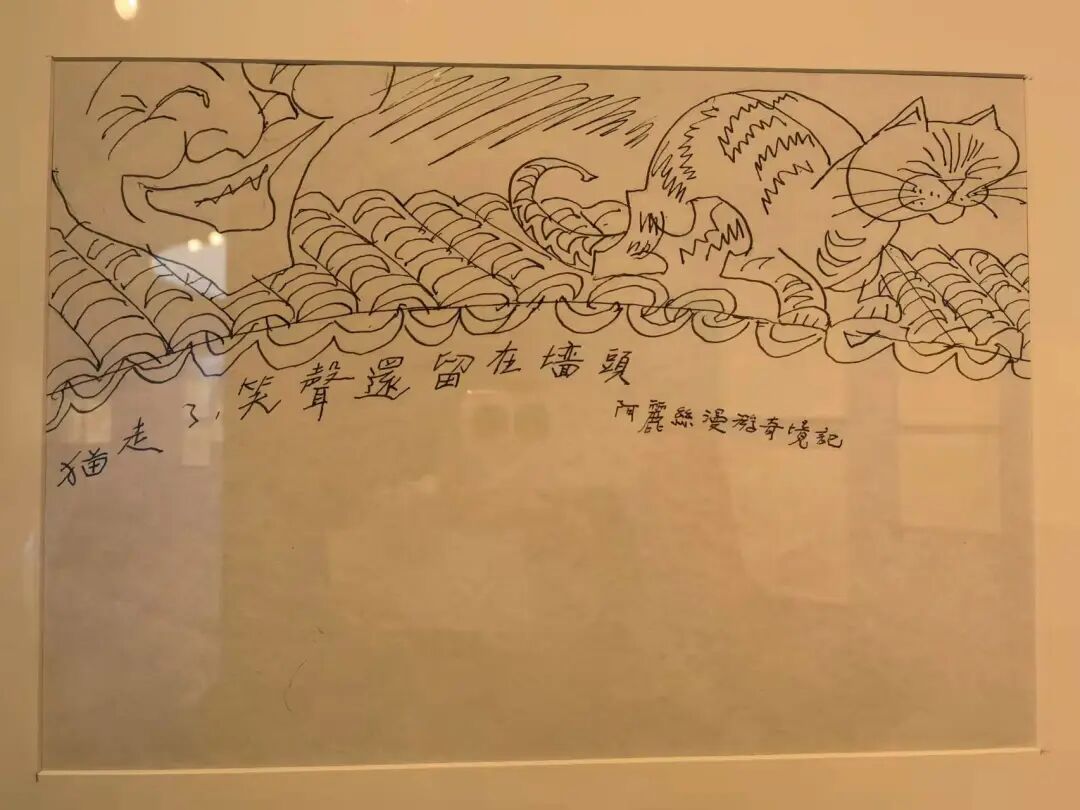 猫走了，笑聲還留在墻頭
阿麗絲漫游奇境記